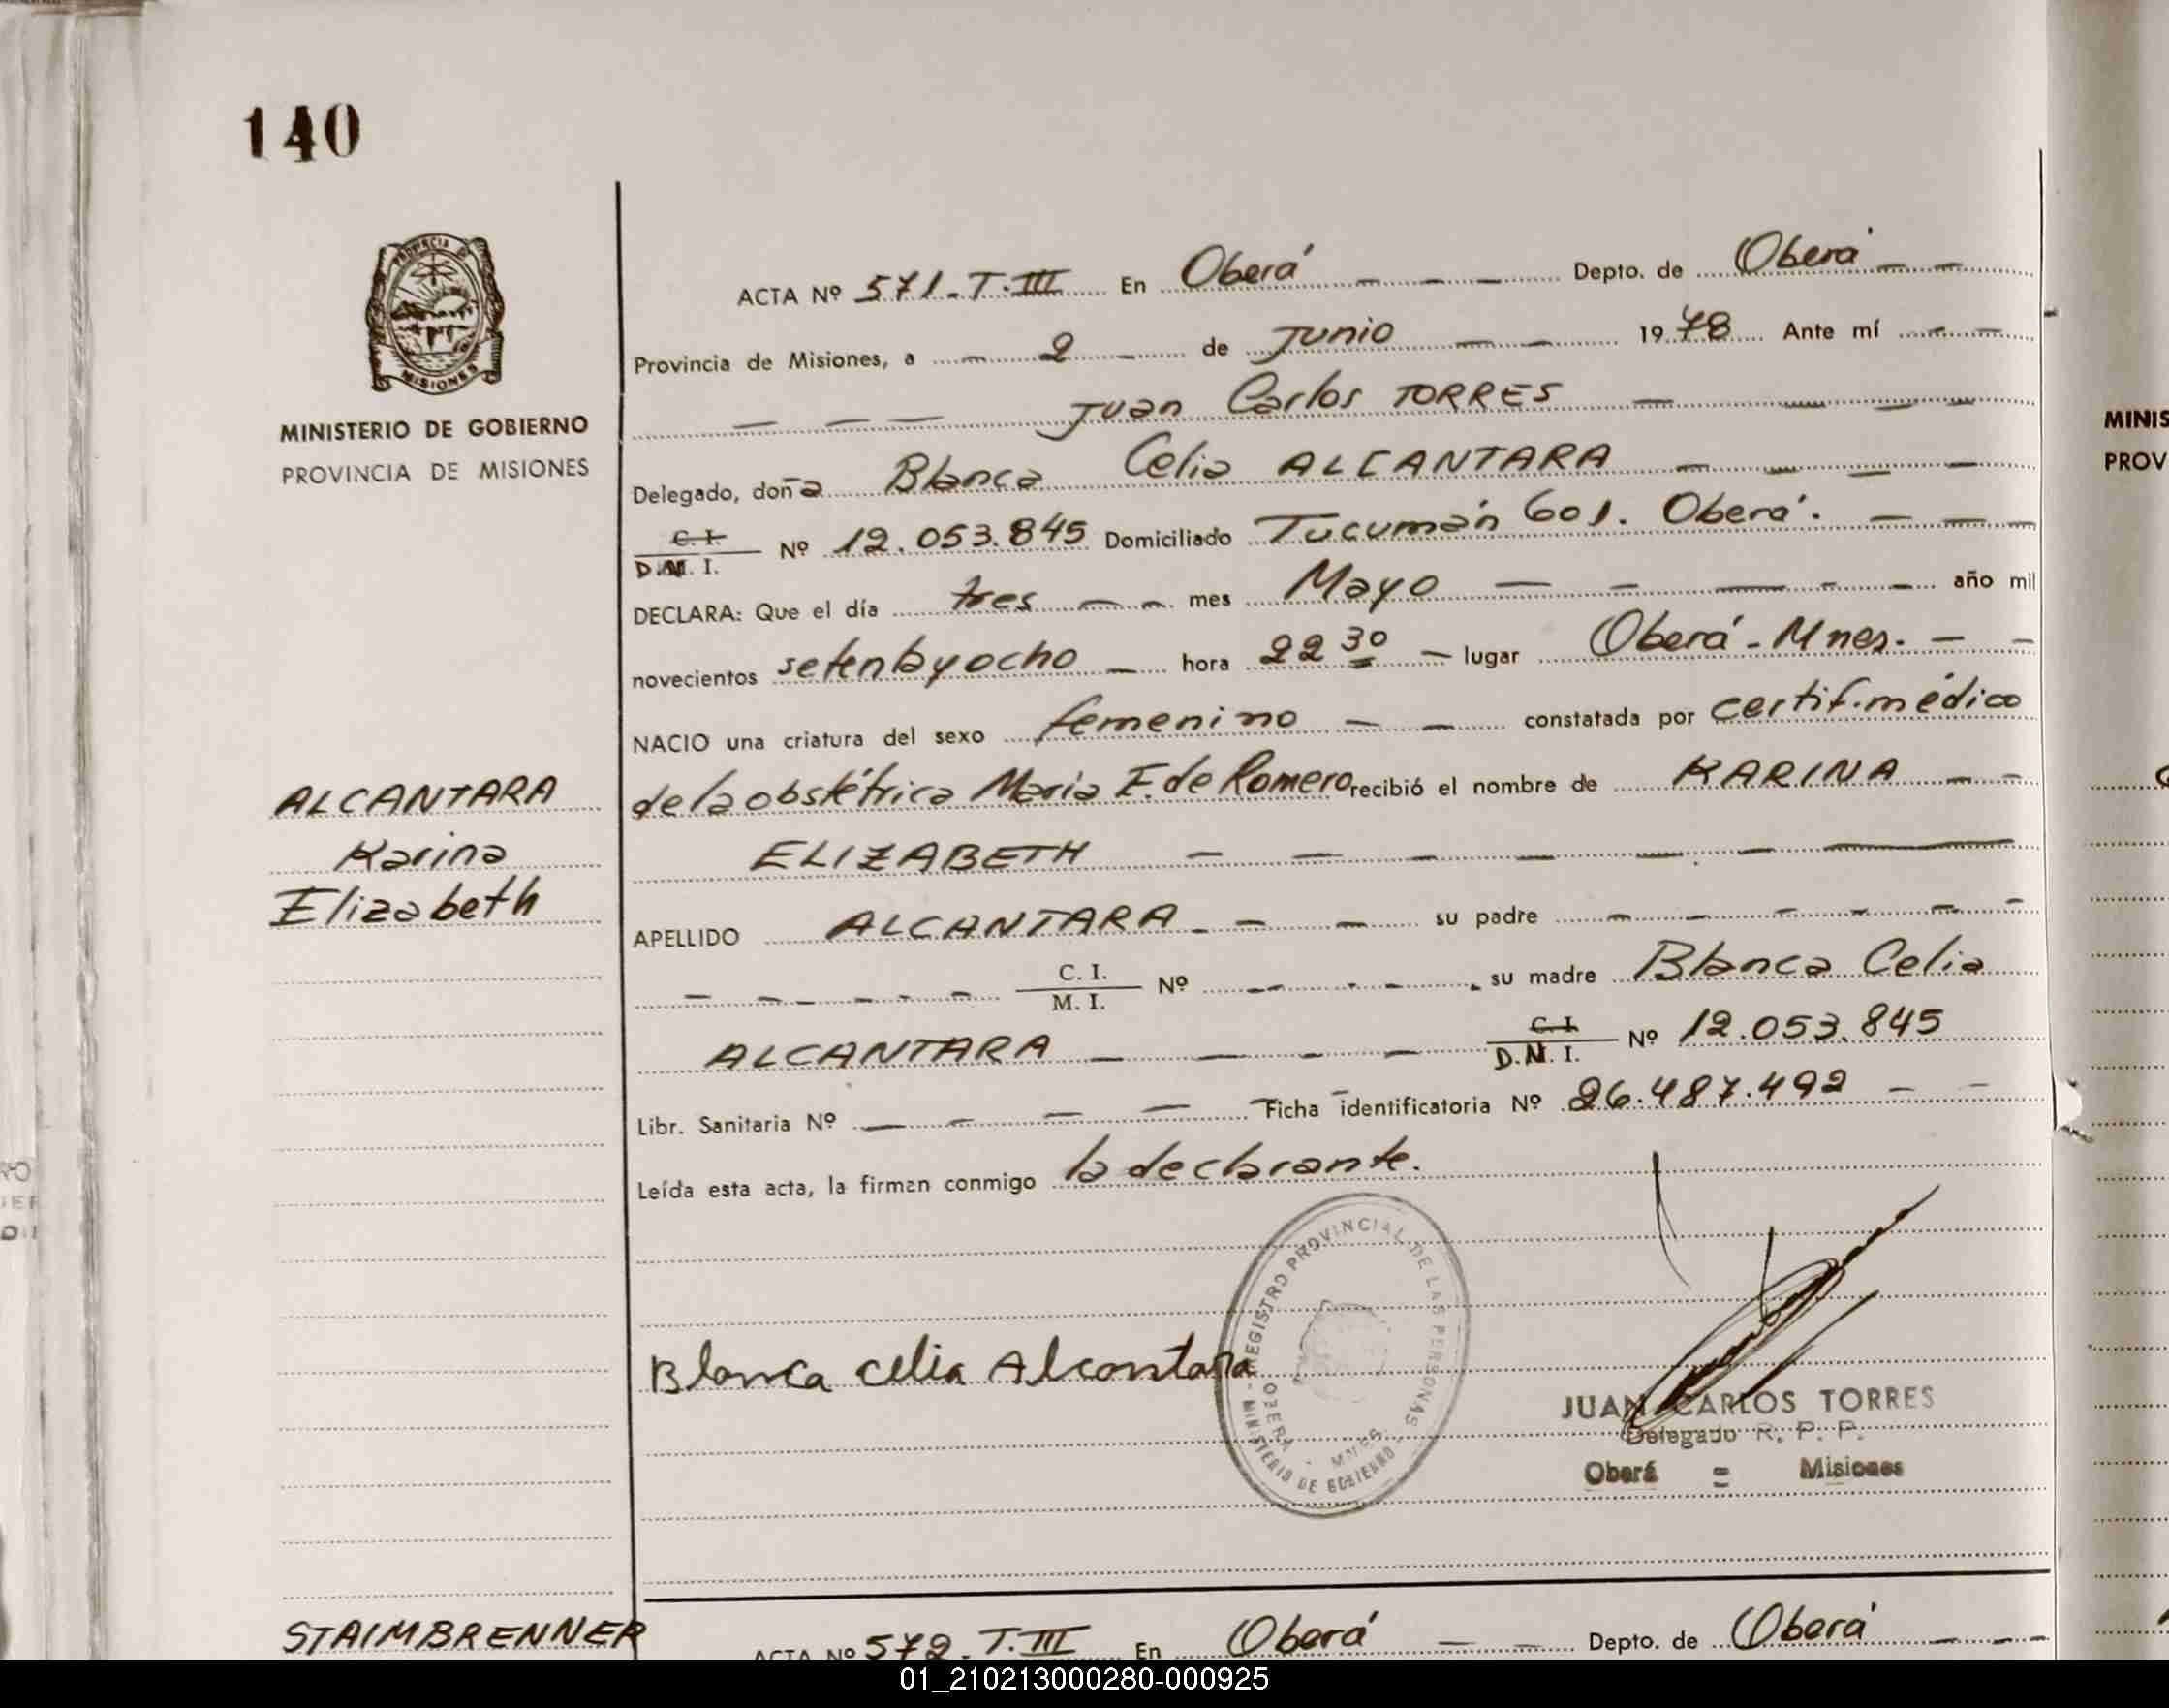 140
PROVINCIA DE
MISIONES
MINISTERIO DE GOBIERNO
PROVINCIA DE MISIONES
ALCANTARA
Karina
Elizabeth
ACTA Nº 571-T.III En Oberá Depto. de Oberá
Provincia de Misiones, a 2 de Junio 1978 Ante mí
Juan Carlos TORRES
Delegado, doña Blanca Celia ALCANTARA
C. I.
D.N. I. Nº 12.053.845 Domiciliado Tucumán 601. Oberá.
DECLARA: Que el día tres mes Mayo año mil
novecientos setentayocho hora 22 30 lugar Oberá - Mnes.
NACIO una criatura del sexo femenino constatada por certif. médico
de la obstétrica Maria E. de Romero recibió el nombre de KARINA
ELIZABETH
APELLIDO ALCANTARA su padre
C. I.
M. I. Nº su madre Blanca Celia
ALCANTARA C. I.
D.N. I. Nº 12.053.845
Libr. Sanitaria Nº Ficha identificatoria Nº 26.487.492
Leída esta acta, la firman conmigo la declarante.
Blanca celia Alcantara
REGISTRO PROVINCIAL DE LAS PERSONAS
MINISTERIO DE GOBIERNO
OBERA - MNES.
JUAN CARLOS TORRES
Delegado R. P. P.
Oberá = Misiones
STAIMBRENNER
ACTA Nº 572. T.III En Oberá Depto. de Oberá
MINIS
PROV
01_210213000280-000925